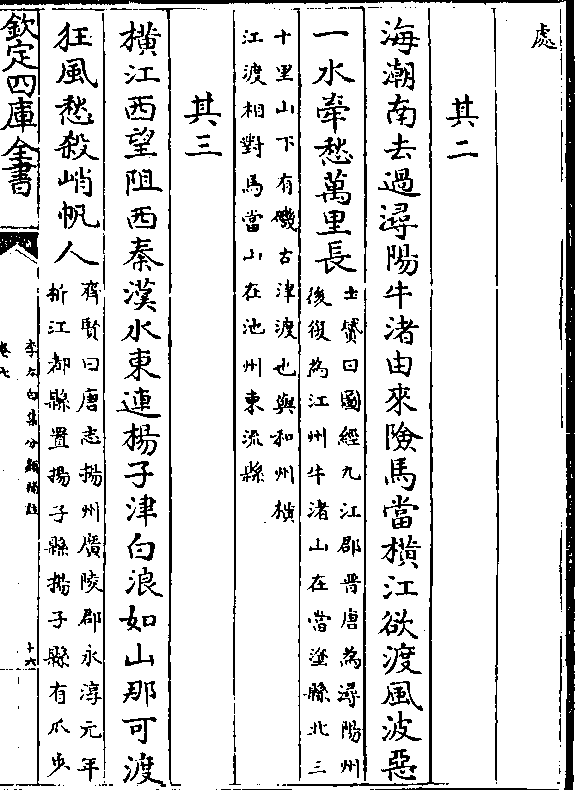 處
其二
海潮南去過潯陽牛渚由來險馬當橫江欲渡風波惡
一水牽愁萬里長
士贇曰圖經九江郡晋唐為潯陽州
後復為江州牛渚山在當塗縣北三
十里山下有磯古津渡也與和州橫
江渡相對馬當山在池州東流縣
其三
橫江西望阻西秦漢水東連楊子津白浪如山那可渡
狂風愁殺峭帆人
齊賢曰唐志揚州廣陵郡永淳元年
析江都縣置揚子縣揚子縣有爪步
欽定四庫全書
李太白集分類補註
卷七
十六